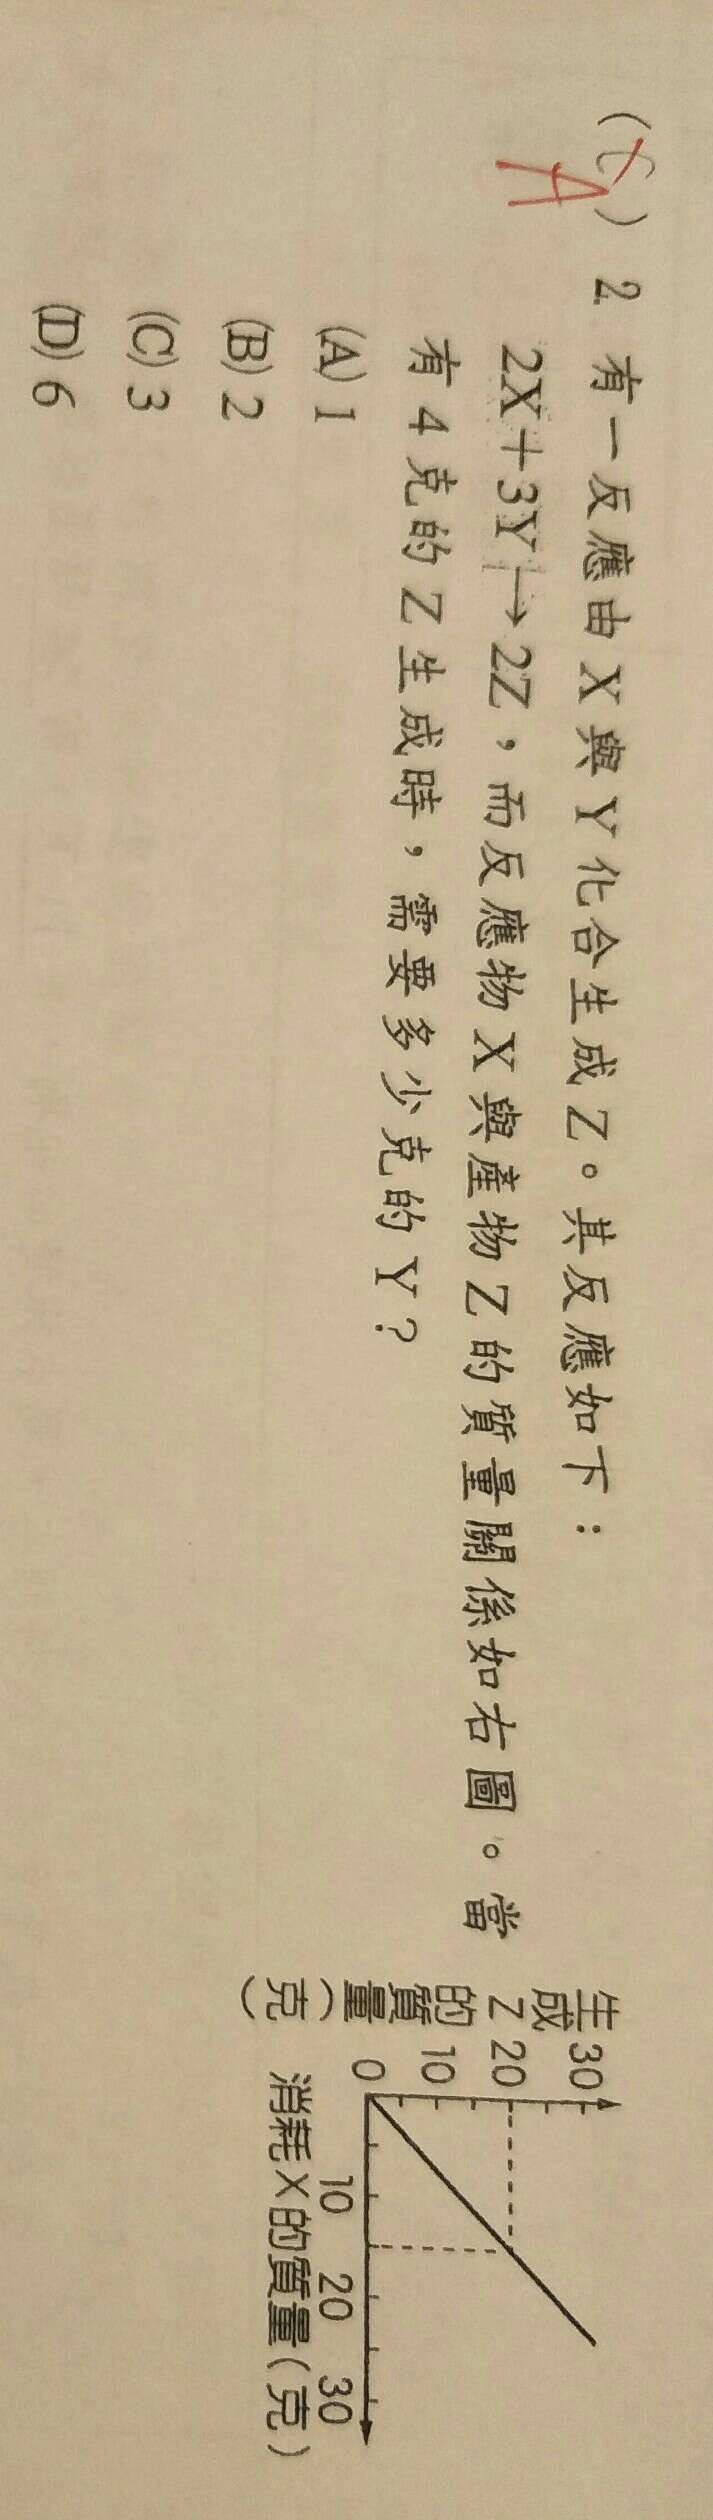 (C) 2. 有一反應由X與Y化合生成Z。其反應如下：
A
2X＋3Y→2Z，而反應物X與產物Z的質量關係如右圖。當
有4克的Z生成時，需要多少克的Y？
(A) 1
(B) 2
(C) 3
(D) 6
生成Z的質量(克)
30
20
10
0
10 20 30
消耗X的質量(克)